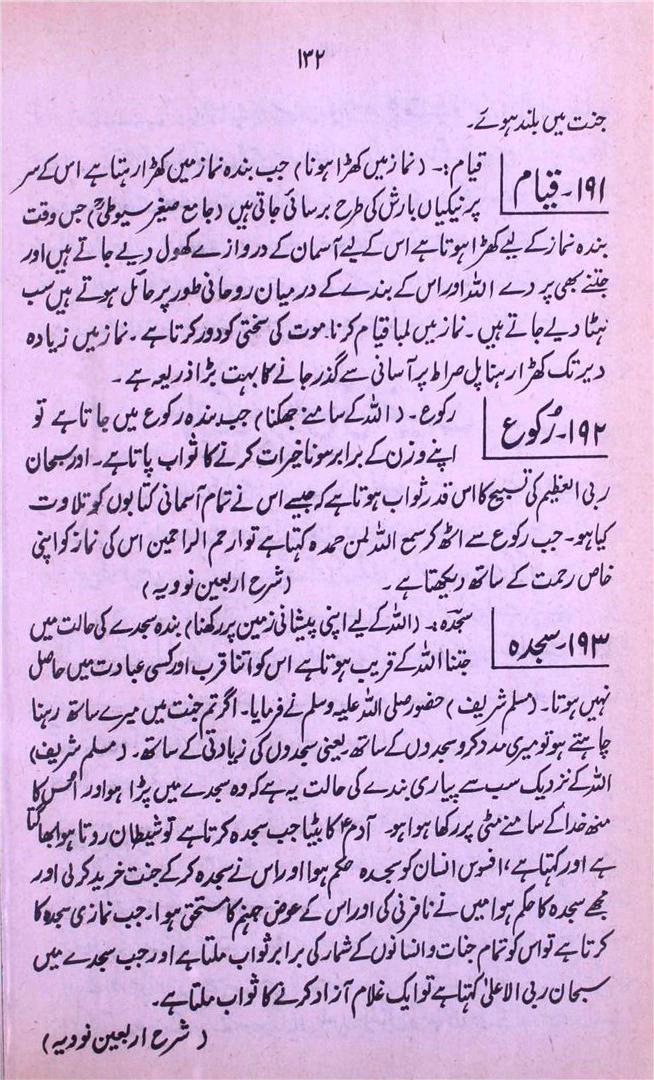 ۱۳۲
جنت میں بلند ہوئے۔
۱۹۱۔ قیام
قیام:۔ (نماز میں کھڑا ہونا) جب بندہ نماز میں کھڑا رہتا ہے اس کے سر
پر نیکیاں بارش کی طرح برسائی جاتی ہیں (جامع صغیر سیوطیؒ) جس وقت
بندہ نماز کے لیے کھڑا ہوتا ہے اس کے لیے آسمان کے دروازے کھول دیے جاتے ہیں اور
جتنے بھی پردے اللہ اور اس کے بندے کے درمیان روحانی طور پر حائل ہوتے ہیں سب
ہٹا دیے جاتے ہیں۔ نماز میں لمبا قیام کرنا موت کی سختی کو دور کرتا ہے۔ نماز میں زیادہ
دیر تک کھڑا رہنا پل صراط پر آسانی سے گذر جانے کا بہت بڑا ذریعہ ہے۔
۱۹۲۔ رُکوع
رکوع۔ (اللہ کے سامنے جھکنا) جب بندہ رکوع میں جاتا ہے تو
اپنے وزن کے برابر سونا خیرات کرنے کا ثواب پاتا ہے۔ اور سبحان
ربی العظیم کی تسبیح کا اس قدر ثواب ہوتا ہے کہ جیسے اس نے تمام آسمانی کتابوں کو تلاوت
کیا ہو۔ جب رکوع سے اٹھ کر سمع اللہ لمن حمدہ کہتا ہے تو ارحم الراحمین اس کی نماز کو اپنی
خاص رحمت کے ساتھ دیکھتا ہے۔ (شرح اربعین نوویہ)
۱۹۳۔ سجدہ
سجدہ:۔ (اللہ کے لیے اپنی پیشانی زمین پر رکھنا) بندہ سجدے کی حالت میں
جتنا اللہ کے قریب ہوتا ہے اس کو اتنا قرب اور کسی عبادت میں حاصل
نہیں ہوتا۔ (مسلم شریف) حضور صلی اللہ علیہ وسلم نے فرمایا۔ اگر تم جنت میں میرے ساتھ رہنا
چاہتے ہو تو میری مدد کرو سجدوں کے ساتھ یعنی سجدوں کی زیادتی کے ساتھ۔ (مسلم شریف)
اللہ کے نزدیک سب سے پیاری بندے کی حالت یہ ہے کہ وہ سجدے میں پڑا ہوا اور اس کا
منھ خدا کے سامنے مٹی پر رکھا ہوا ہو۔ آدمؑ کا بیٹا جب سجدہ کرتا ہے تو شیطان روتا ہوا بھاگتا
ہے اور کہتا ہے، افسوس انسان کو سجدہ حکم ہوا اور اس نے سجدہ کر کے جنت خرید کر لی اور
مجھے سجدہ کا حکم ہوا میں نے نافرنی کی اور اس کے عوض جہنم کا مستحق ہوا۔ جب نمازی سجدہ کا
کرتا ہے تو اس کو تمام جنات و انسانوں کے شمار کی برابر ثواب ملتا ہے اور جب سجدے میں
سبحان ربی الاعلیٰ کہتا ہے تو ایک غلام آزاد کرنے کا ثواب ملتا ہے۔
(شرح اربعین نوویہ)